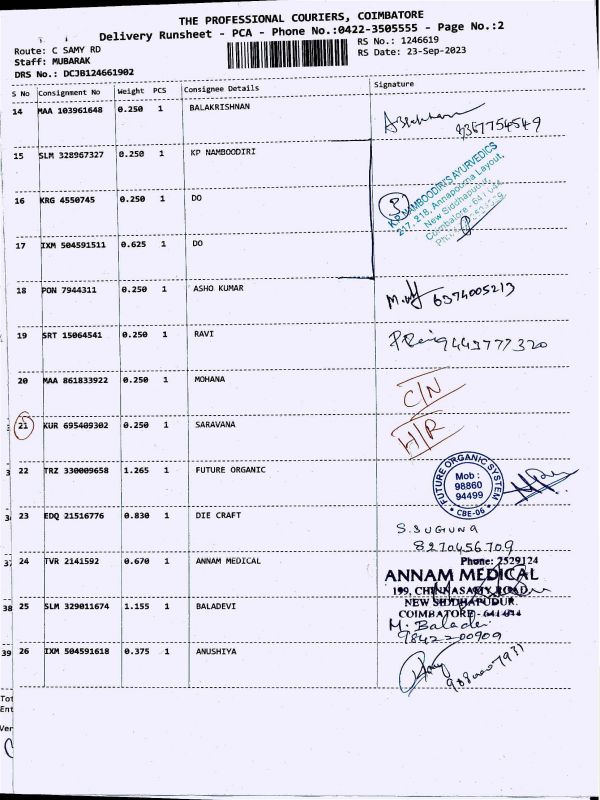 THE PROFESSIONAL COURIERS, COIMBATORE
Delivery Runsheet - PCA - Phone No.:0422-3505555 - Page No.:2
Route: C SAMY RD
RS No.: 1246619
Staff: MUBARAK
RS Date: 23-Sep-2023
DRS No.: DCJB124661902
S No Consignment No Weight PCS Consignee Details Signature
14 MAA 103961648 0.250 1 BALAKRISHNAN
9367754549
15 SLM 328967327 0.250 1 KP NAMBOODIRI
16 KRG 4550745 0.250 1 DO
3
K.P. NAMBOODIRI'S AYURVEDICS
217, 218, Annapoorna Layout,
New Siddhapudur,
Coimbatore - 641 044
17 IXM 504591511 0.625 1 DO
18 PON 7944311 0.250 1 ASHO KUMAR
6374005213
19 SRT 15064541 0.250 1 RAVI
9442777320
20 MAA 861833922 0.250 1 MOHANA
C/N
21 KUR 695409302 0.250 1 SARAVANA
H/R
22 TRZ 330009658 1.265 1 FUTURE ORGANIC
FUTURE ORGANIC SYSTEM
Mob :
98860
94499
* CBE-06 *
23 EDQ 21516776 0.830 1 DIE CRAFT
S. SUGUNA
8270456709
37 24 TVR 2141592 0.670 1 ANNAM MEDICAL
Phone: 2529124
ANNAM MEDICAL
199, CHINNASAMY ROAD,
NEW SIDDHAPUDUR.
COIMBATORE - 641 044
38 25 SLM 329011674 1.155 1 BALADEVI
M. Balade
9842200909
39 26 IXM 504591618 0.375 1 ANUSHIYA
Tot
Ent
Ver